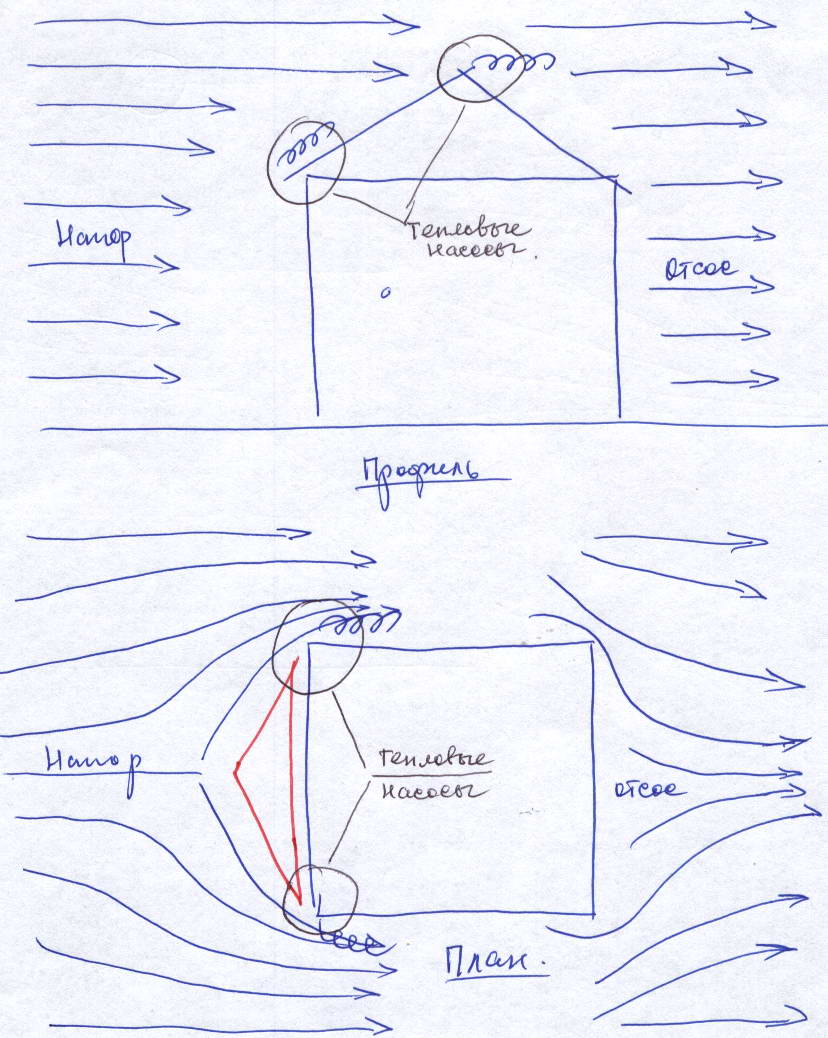 Напор
Тепловые
насосы.
Отсос
Профиль
Напор
Тепловые
насосы
отсос
План.